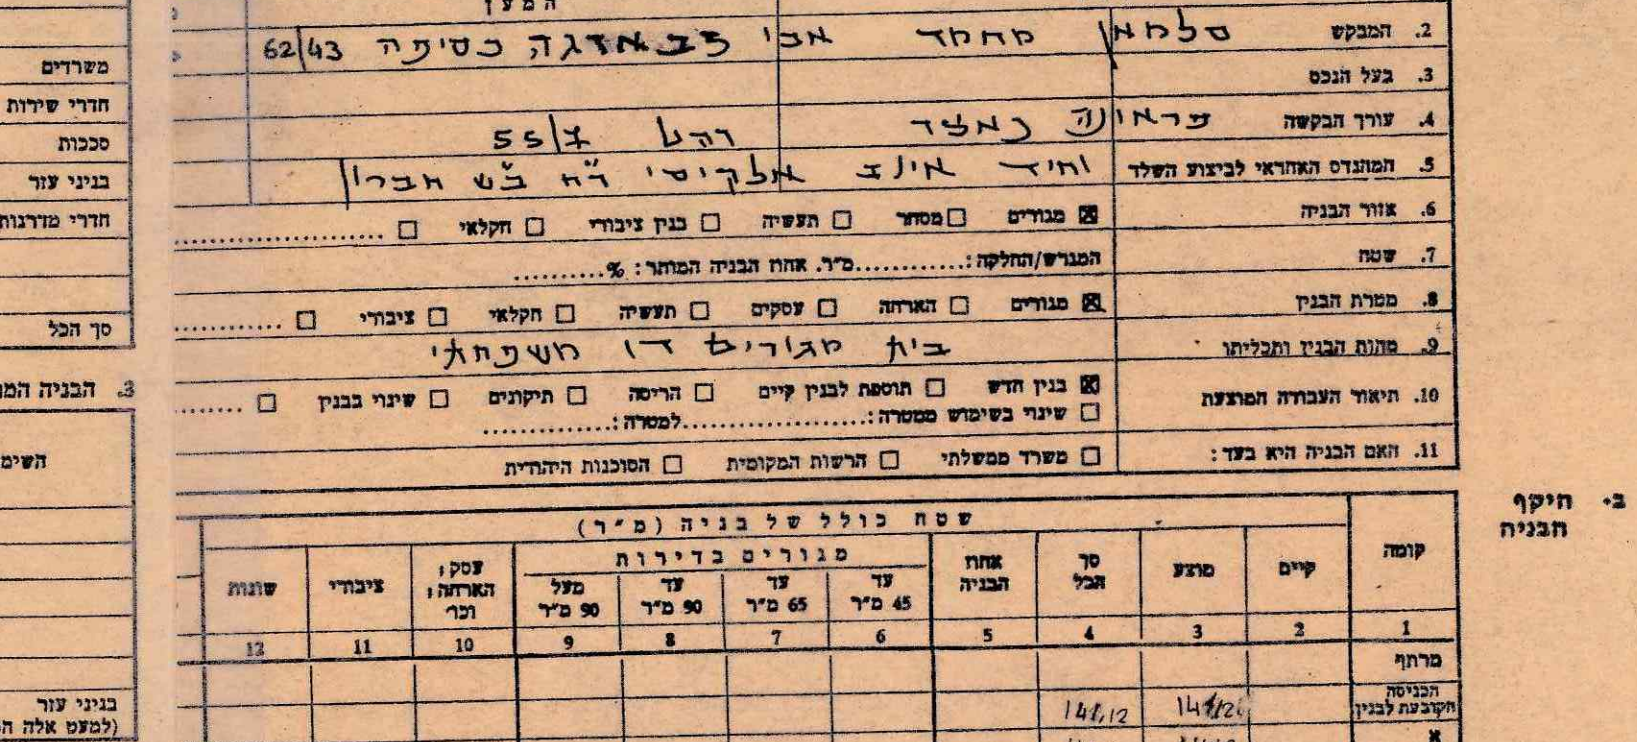 המען
2. המבקש סלמאן מחמד אבי כסיפה 62/43
3. בעל הנכס
4. עורך הבקשה רהט 55/7
5. המהנדס האחראי לביצוע השלד וחיד
6. אזור הבניה ☒ מגורים ☐ מסחר ☐ תעשיה ☐ בנין ציבורי ☐ חקלאי ☐ ....................
7. שטח המגרש/החלקה: ............ מ״ר. אחוז הבניה המותר: % ..........
8. מטרת הבנין ☒ מגורים ☐ הארחה ☐ עסקים ☐ תעשיה ☐ חקלאי ☐ ציבורי ☐ ..........
9. מהות הבנין ותכליתו בית מגורים דו משפחתי
10. תיאור העבודה המוצעת ☒ בנין חדש ☐ תוספת לבנין קיים ☐ הריסה ☐ תיקונים ☐ שינוי בבנין ☐ .......
☐ שינוי בשימוש ממטרה: .................... למטרה: ..............
11. האם הבניה היא בעד: ☐ משרד ממשלתי ☐ הרשות המקומית ☐ הסוכנות היהודית
ב. היקף הבניה
שטח כולל של בניה (מ״ר)
קומה קיים מוצע סך הכל אחוז הבניה מגורים בדירות עסק; הארחה; וכו׳ ציבורי שונות
עד 45 מ״ר עד 65 מ״ר עד 90 מ״ר מעל 90 מ״ר
1 2 3 4 5 6 7 8 9 10 11 12
מרתף
הכניסה הקובעת לבנין 141,12
א
משרדים
חדרי שירות
סככות
בניני עזר
חדרי מדרגות
סך הכל
3. הבניה
בניני עזר
(למעט אלה